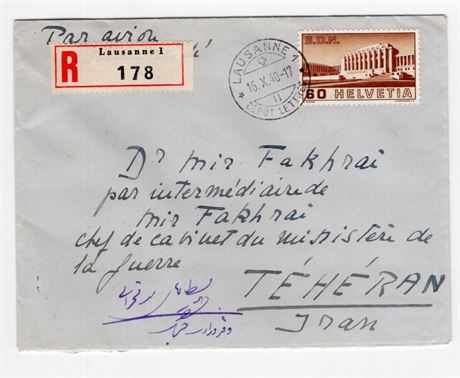 Par avion
Lausanne 1
R 178
LAUSANNE 1
16.X.40-17
II
DÉPÔT LETTRES
S.D.N.
60 HELVETIA
Dr mir Fakhrai
par intermédiaire de
mir Fakhrai
chef de cabinet du ministère de
la guerre
TÉHÉRAN
Iran